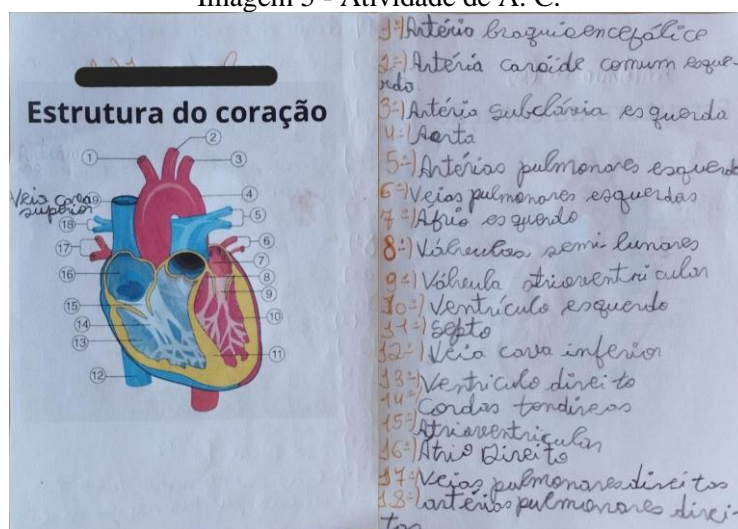 Imagem 3 - Atividade de A. C.
Estrutura do coração
1
2
3
4
5
6
7
8
9
10
11
12
13
14
15
16
17
18
19
Veia cava
superior
1=)Artério braquioencefálice
2=)Artéria caróide comum esque-
rdo.
3=)Artéria subclávia esquerda
4=)Aorta
5=)Artérias pulmonares esquerda
6=)Veias pulmonares esquerdas
7=)Atrio esquerdo
8=)Válvulas semi lunares
9=)Válvula atrioventricular
10=)Ventrículo esquerdo
11=)Septo
12=)Veia cava inferior
13=)Ventriculo direito
14=)Cordas tendíneas
15=)Atrioventricular
16=)Atrio Direito
17=)Veias pulmonares direitas
18=)artérias pulmonares direi-
tas